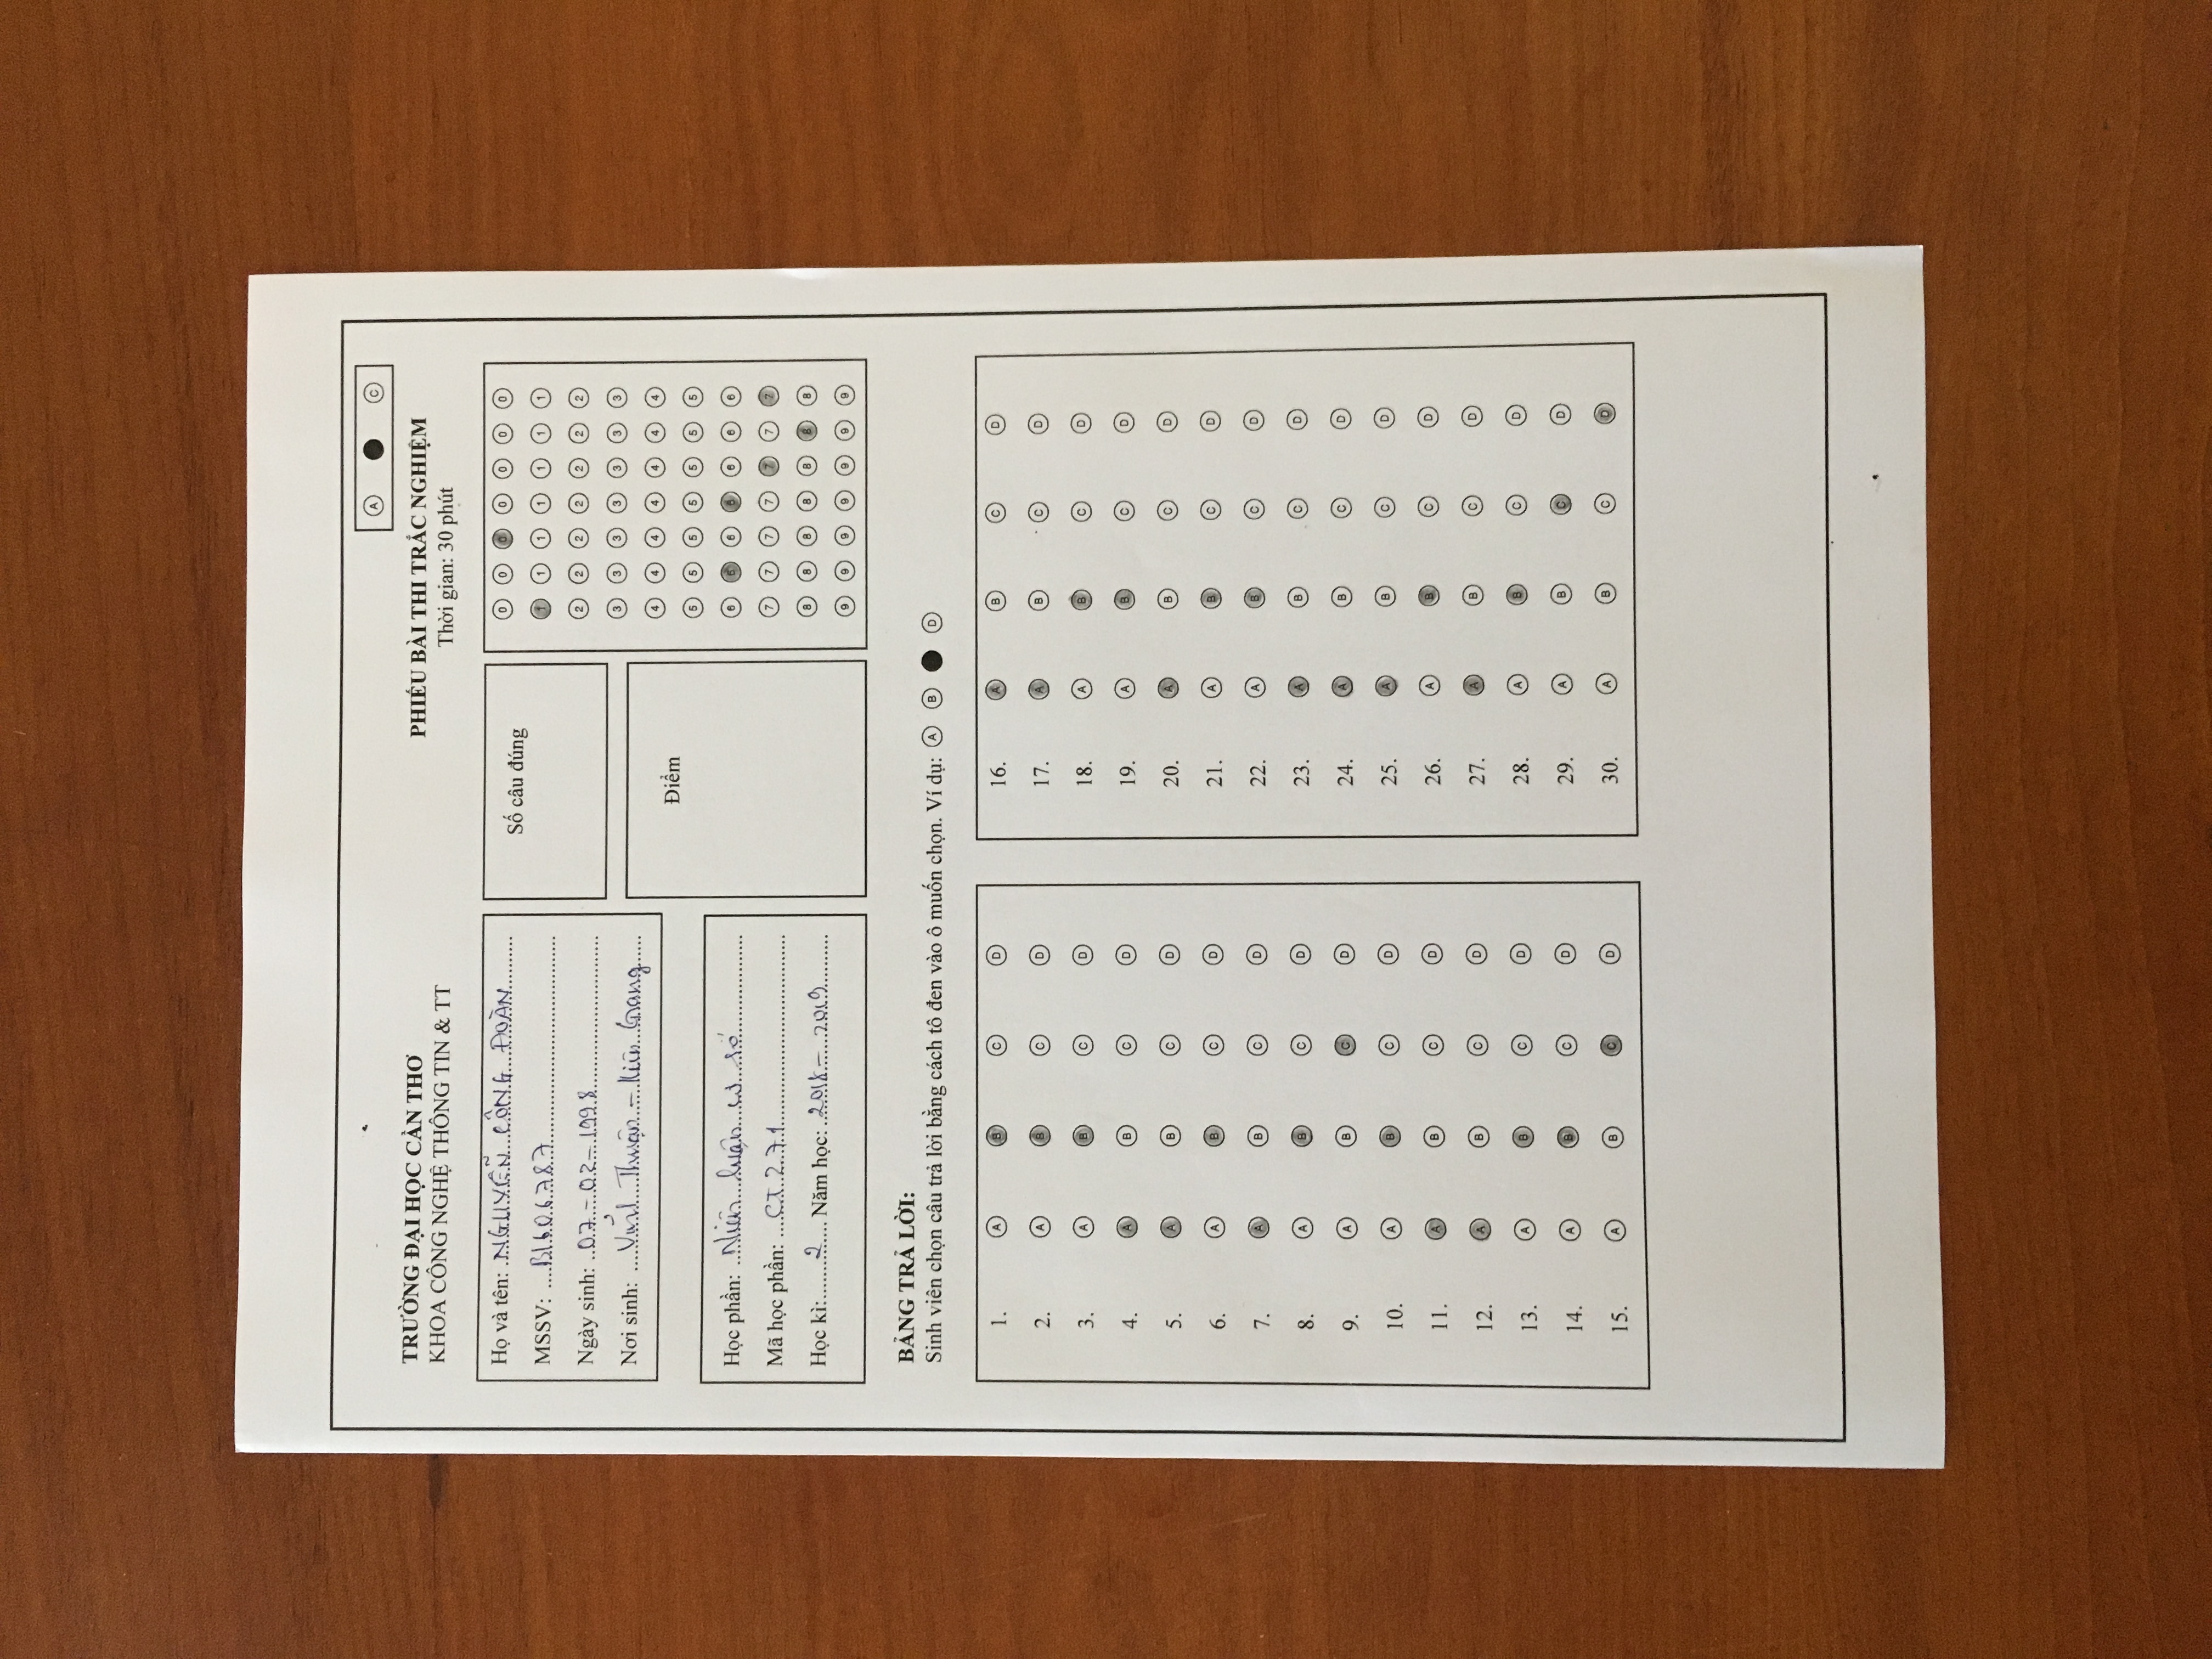 Ⓐ ● Ⓒ
TRƯỜNG ĐẠI HỌC CẦN THƠ
KHOA CÔNG NGHỆ THÔNG TIN & TT
PHIẾU BÀI THI TRẮC NGHIỆM
Thời gian: 30 phút
Họ và tên: NGUYỄN CÔNG ĐOÀN
MSSV: B1606787
Ngày sinh: 07-02-1998
Nơi sinh: Vĩnh Thuận - Kiên Giang
Học phần: Niên luận cơ sở
Mã học phần: CT271
Học kì: 2 Năm học: 2018-2019
Số câu đúng
Điểm
0 0 0 0 0 0 0
1 1 1 1 1 1 1
2 2 2 2 2 2 2
3 3 3 3 3 3 3
4 4 4 4 4 4 4
5 5 5 5 5 5 5
6 6 6 6 6 6 6
7 7 7 7 7 7 7
8 8 8 8 8 8 8
9 9 9 9 9 9 9
BẢNG TRẢ LỜI:
Sinh viên chọn câu trả lời bằng cách tô đen vào ô muốn chọn. Ví dụ: Ⓐ Ⓑ ● Ⓓ
1. A B C D
2. A B C D
3. A B C D
4. A B C D
5. A B C D
6. A B C D
7. A B C D
8. A B C D
9. A B C D
10. A B C D
11. A B C D
12. A B C D
13. A B C D
14. A B C D
15. A B C D
16. A B C D
17. A B C D
18. A B C D
19. A B C D
20. A B C D
21. A B C D
22. A B C D
23. A B C D
24. A B C D
25. A B C D
26. A B C D
27. A B C D
28. A B C D
29. A B C D
30. A B C D